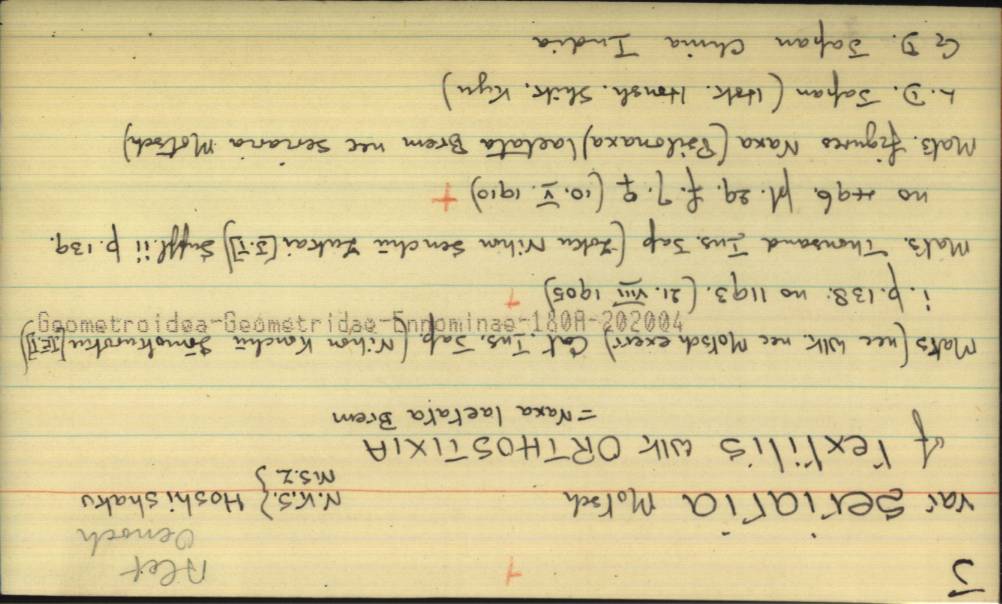 J
Alet
Oenoch
var seriaria Motsch N.K.S.} Hoshishaku
N.S.Z }
of textilis wlk ORTHOSTIXIA
=Naxa laetata Brem
Mats (nec Wlk. nec Motsch exerr) Cat. Ins. Jap. (Nihon Konchū Sōmokuroku [J.T.])
Geometroidea-Geometridae-Ennominae-180A-202004
i. p.138. no 1193. (21. VIII 1905)
Mats. Thousand Ins. Jap (Zoku Nihon Senchū Zukai [J.T.]) Suppl ii p.139.
no 496 pl. 29. f. 7. ♀ (10. V. 1910) +
Mats. figures Naxa (Psilonaxa) laetata Brem nec seriaria Motsch)
L. D. Japan (Hok. Honsh. Shik. Kyu)
G. D. Japan China India